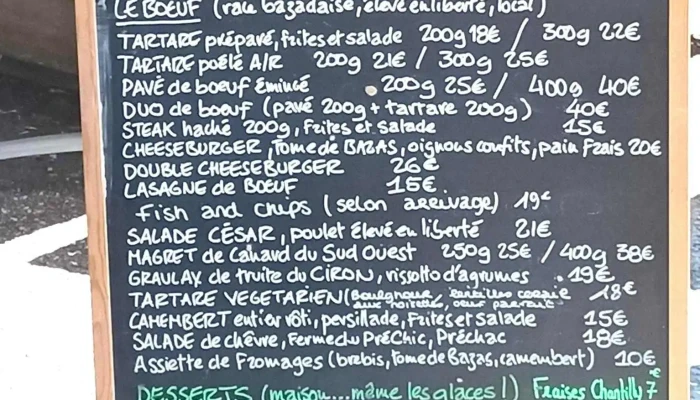 LE BŒUF (race bazadaise, élevé en liberté, local)
TARTARE préparé, frites et salade 200g 18€ / 300g 22€
TARTARE poêlé A/R 200g 21€ / 300g 25€
PAVÉ de boeuf émincé 200g 25€ / 400g 40€
DUO de boeuf (pavé 200g + tartare 200g) 40€
STEAK haché 200g, frites et salade 15€
CHEESEBURGER, Tome de BAZAS, oignons confits, pain frais 20€
DOUBLE CHEESEBURGER 26€
LASAGNE de BOEUF 15€
Fish and chips (selon arrivage) 19€
SALADE CÉSAR, poulet élevé en liberté 21€
MAGRET de Canard du Sud Ouest 250g 25€ / 400g 38€
GRAULAX de truite du CIRON, rissotto d'agrumes 19€
TARTARE VEGETARIEN (
18€
CAMEMBERT entier rôti, persillade, Frites et Salade 15€
SALADE de chèvre, Ferme du PréChic, Préchac 18€
Assiette de Fromages (brebis, tome de Bazas, camembert) 10€
DESSERTS (maison...même les glaces !) Fraises Chantilly 7€